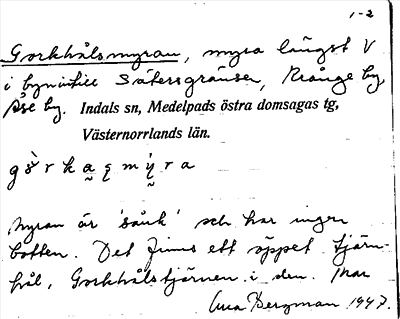 1-2
Gorkhålsmyran, myra längst V
i byn intill Sätersgränsen, Krånge by,
Åse by. Indals sn, Medelpads östra domsagas tg,
Västernorrlands län.
Myran är 'sank' och har ingen
botten. Det finns ett öppet tjärn-
hål, Gorkhålstjärnen i den. Mar
Bergman 1947.